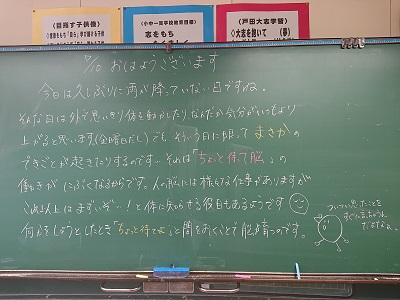 《目指す子供像》
《小中一貫学校教育目標》
志をもち
《戸田大志学習》
大志を抱いて (夢)
6/10 おはようございます
今日は久しぶりに雨が降っていない日ですね。
そんな日は外で思いきり体を動かしたりなんだか気分がいつもより
上がると思います(金曜日だし)。でも、そういう日に限って まさか の
できごとが起きたりするのです… それは「ちょっと待って脳」の
働きがにぶくなるからです。人の脳には様々な仕事がありますが
これ以上はまずいぞ…!と体に知らせる役目もあるようです
何かをしようとしたとき「ちょっと待てよ」と間をおくことで脳が育つのです。
ついつい思ったことを
すぐに言っちゃうん
だよなぁ。